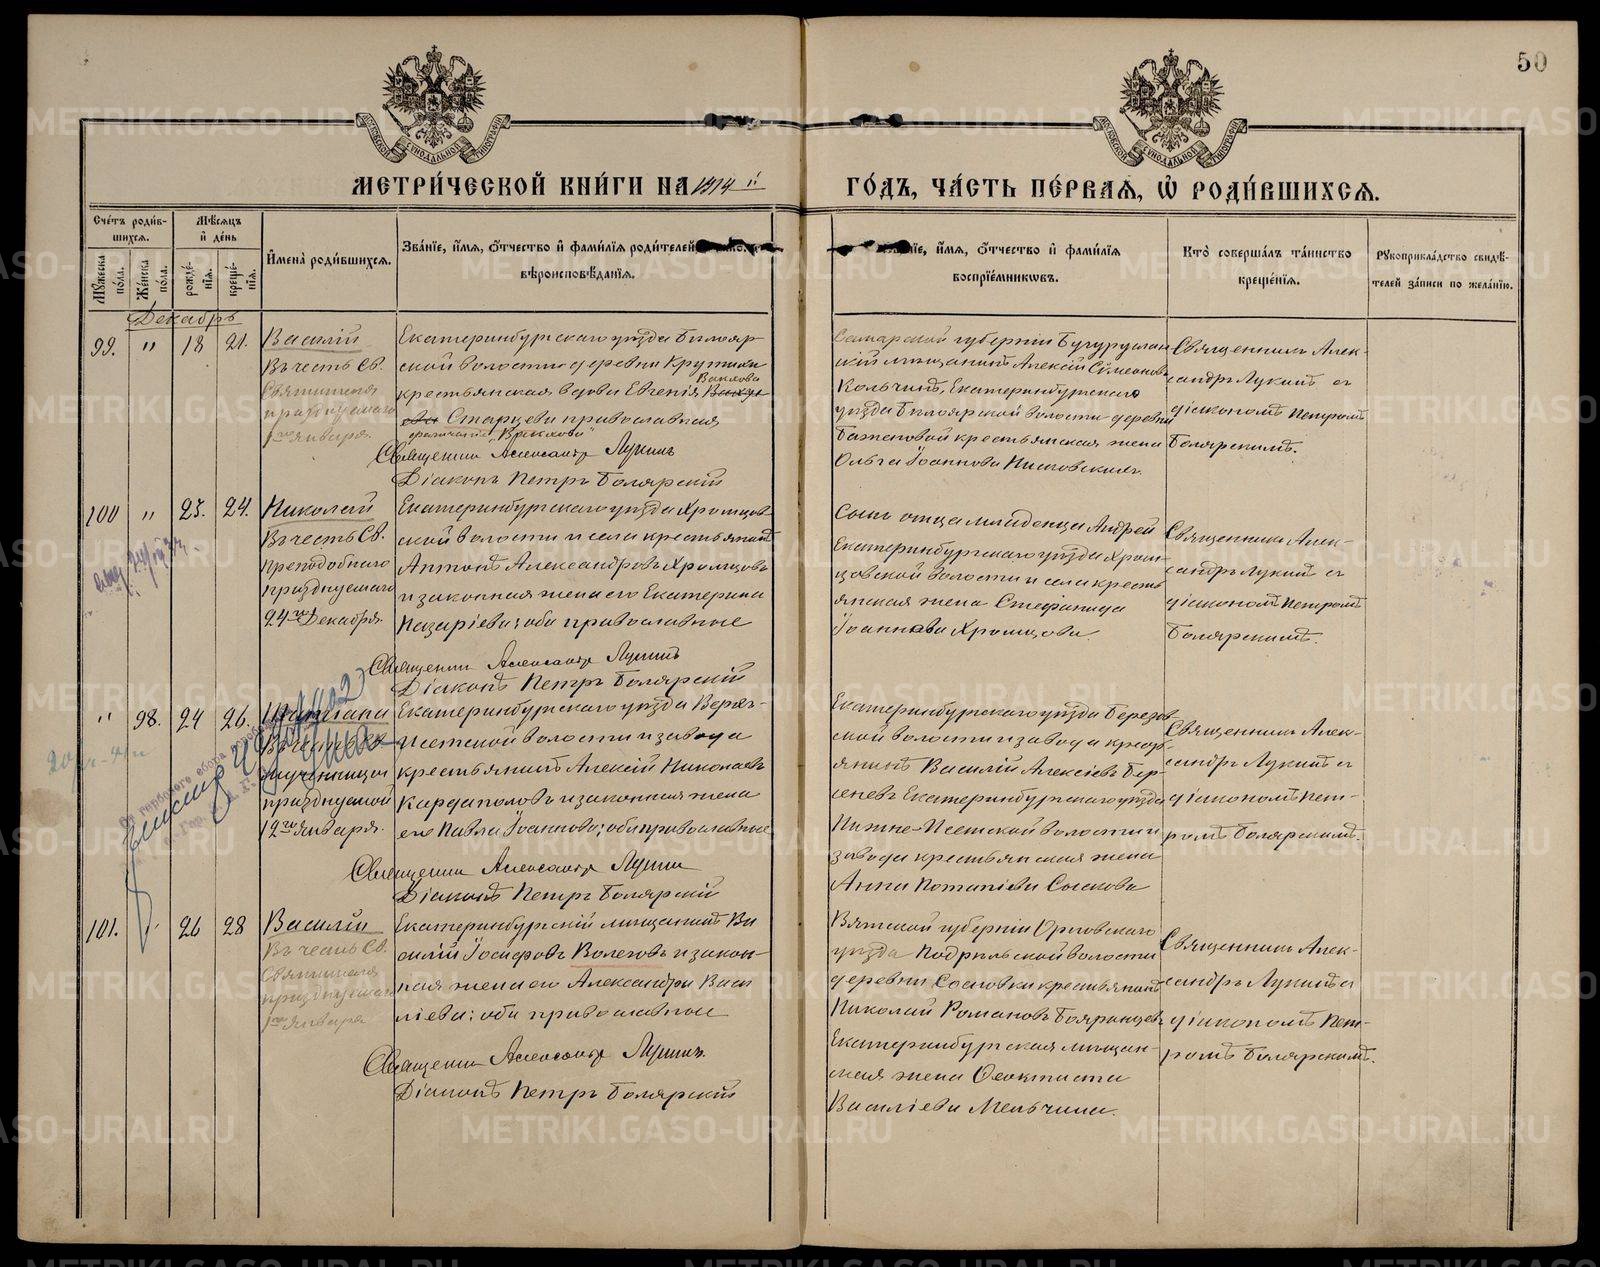 50
МЕТРИ́ЧЕСКОЙ КНИ́ГИ НА 1914 й
ГО́ДЪ, ЧА́СТЬ ПЕ́РВАЯ, Ѡ҆ РОДИ́ВШИХСЯ.
Сче́тъ роди́в-
шихся.
Мѣ́сяцъ
и҆ де́нь
Му́жеска по́ла.
Же́нска по́ла.
рожде́-
нїя.
креще́-
нїя.
И҆мена̀ роди́вшихся.
Зва́нїе, и҆́мя, ѻ҆́тчество и҆ фами́лїя роди́телей
вѣроисповѣ́данїя.
и҆́мя, ѻ҆́тчество и҆ фами́лїя
воспрїе́мниковъ.
Кто̀ соверша́лъ та́инство
креще́нїя.
Рукоприкла́дство свидѣ́-
телей за́писи по жела́нїю.
Декабрь
99. " 18 21.
Василій
Въ честь Св.
Святителя
празднуемаго
1го Января.
Екатеринбургскаго уѣзда Бѣлояр-
ской волости деревни
крестьянская вдова Евгенія
Старцева православная
Священникъ Александръ Лукинъ
Діаконъ Петръ Боярскій
Самарской губерніи Бугуруслан-
скій мѣщанинъ Алексѣй Сѷмеоновъ
Кольчинъ, Екатеринбургскаго
уѣзда Бѣлоярской волости деревни
Баженовой крестьянская жена
Ольга Іоаннова
Священникъ Алек-
сандръ Лукинъ съ
діакономъ Петромъ
Боярскимъ.
100 " 23. 24.
Николай
Въ честь Св.
преподобнаго
празднуемаго
24го Декабря.
Екатеринбургскаго уѣзда Хромцов-
ской волости и села крестьянинъ
Антонъ Александровъ Хромцовъ
и законная жена его Екатерина
Назаріева; оба православные
Священникъ Александръ Лукинъ
Діаконъ Петръ Боярскій
Сынъ отца младенца Андрей
Екатеринбургскаго уѣзда Хром-
цовской волости и села кресть-
янская жена Стефанида
Іоаннова Хромцова.
Священникъ Алек-
сандръ Лукинъ съ
діакономъ Петромъ
Боярскимъ.
" 98. 24 26.
Татіана
Въ честь Св.
мученицы
празднуемой
12го Января.
Екатеринбургскаго уѣзда Верхъ-
Исетской волости и завода
крестьянинъ Алексѣй Николаевъ
Кардаполовъ и законная жена
его Павла Іоаннова; оба православные
Священникъ Александръ Лукинъ
Діаконъ Петръ Боярскій
Екатеринбургскаго уѣзда Березов-
ской волости и завода кресть-
янинъ Василій Алексіевъ Бер-
сеневъ Екатеринбургскаго уѣзда
Нижне-Исетской волости и
завода крестьянская жена
Анна Потапіева Сыскова
Священникъ Алек-
сандръ Лукинъ съ
діакономъ Пет-
ромъ Боярскимъ.
101. " 26 28
Василій
Въ честь Св.
Святителя
празднуемаго
1го Января
Екатеринбургскій мѣщанинъ Ва-
силій Іосифовъ Волеговъ и закон-
ная жена его Александра Васи-
ліева; оба православные
Священникъ Александръ Лукинъ.
Діаконъ Петръ Боярскій
Вятской губерніи Орловскаго
уѣзда Подрѣльской волости
деревни Сосновки крестьянинъ
Николай Романовъ Бояринцевъ
Екатеринбургская мѣщан-
ская жена Ѳеоктиста
Василіева Мельчина.
Священникъ Алек-
сандръ Лукинъ съ
діакономъ Пет-
ромъ Боярскимъ.
METRIKI.GASO-URAL.RU